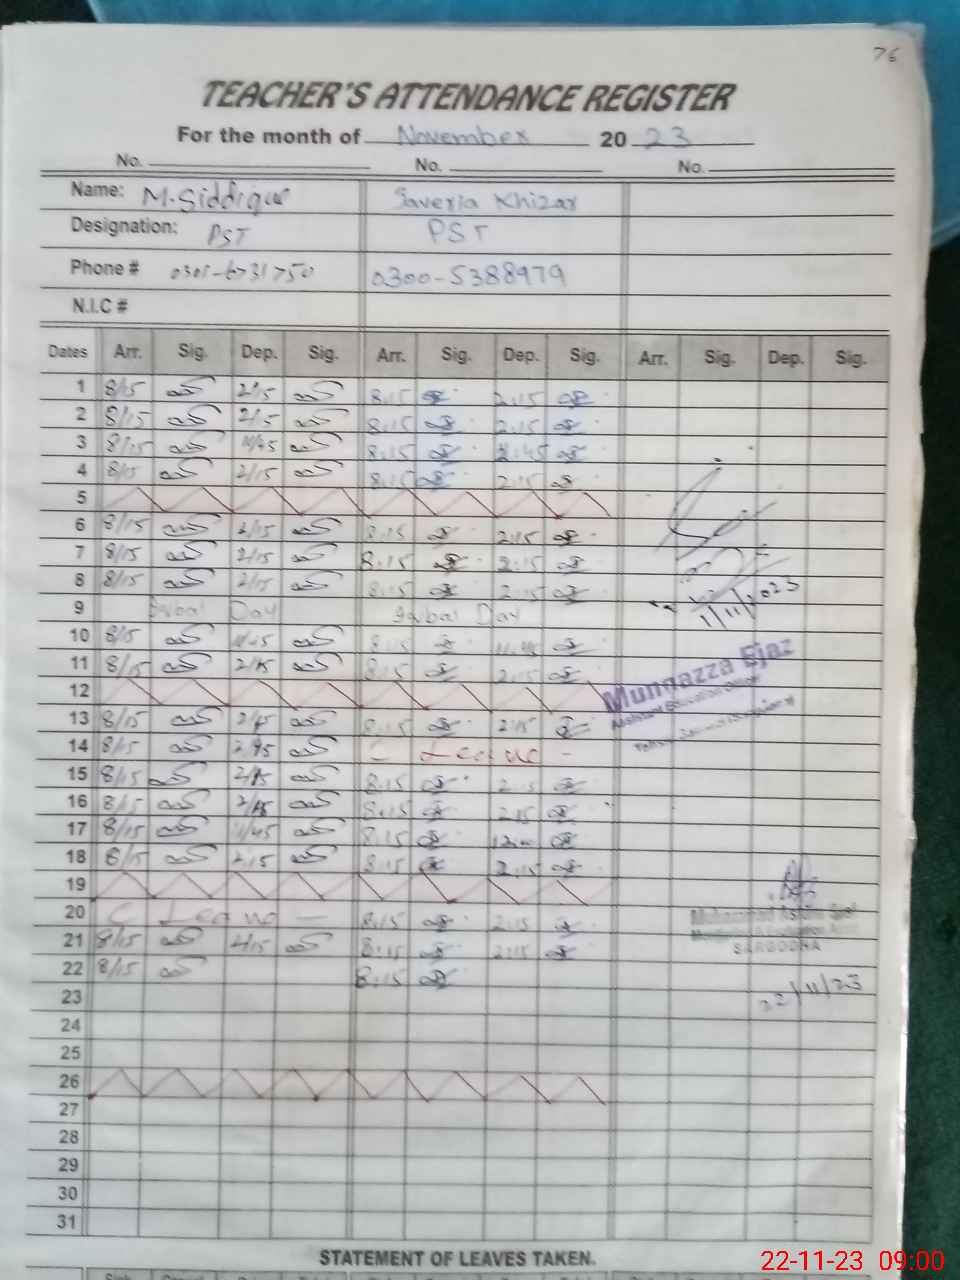 76
TEACHER'S ATTENDANCE REGISTER
For the month of November 2023
No. No. No.
Name: M. Siddique Javeria Khizar
Designation: PST PST
Phone # 0300-5388979
N.I.C #
Dates Arr. Sig. Dep. Sig. Arr. Sig. Dep. Sig. Arr. Sig. Dep. Sig.
1 8/15 2/15 8:15 2:15
2 8/15 2/15 8:15 2:15
3 8/15 8:15
4 8/15 2/15 8:15 2:15
5
6 8/15 2/15 8:15 2:15
7 8/15 2/15 8:15 2:15
8 8/15 2/15 8:15 2:15
9 Iqbal Day Iqbal Day
10 8/15 8:15
11 8/15 2/15 8:15 2:15
12
13 8/15 8:15 2:15
14 8/15 C Leave -
15 8/15 8:15
16 8/15 8:15 2:15
17 8/15 8:15
18 8/15 2:15 8:15 2:15
19
20 C Leave - 8:15 2:15
21 8/15 2/15 8:15 2:15
22 8/15 8:15
23
24
25
26
27
28
29
30
31
Munnazza Ejaz
SARGODHA
22/11/23
STATEMENT OF LEAVES TAKEN.
22-11-23 09:00